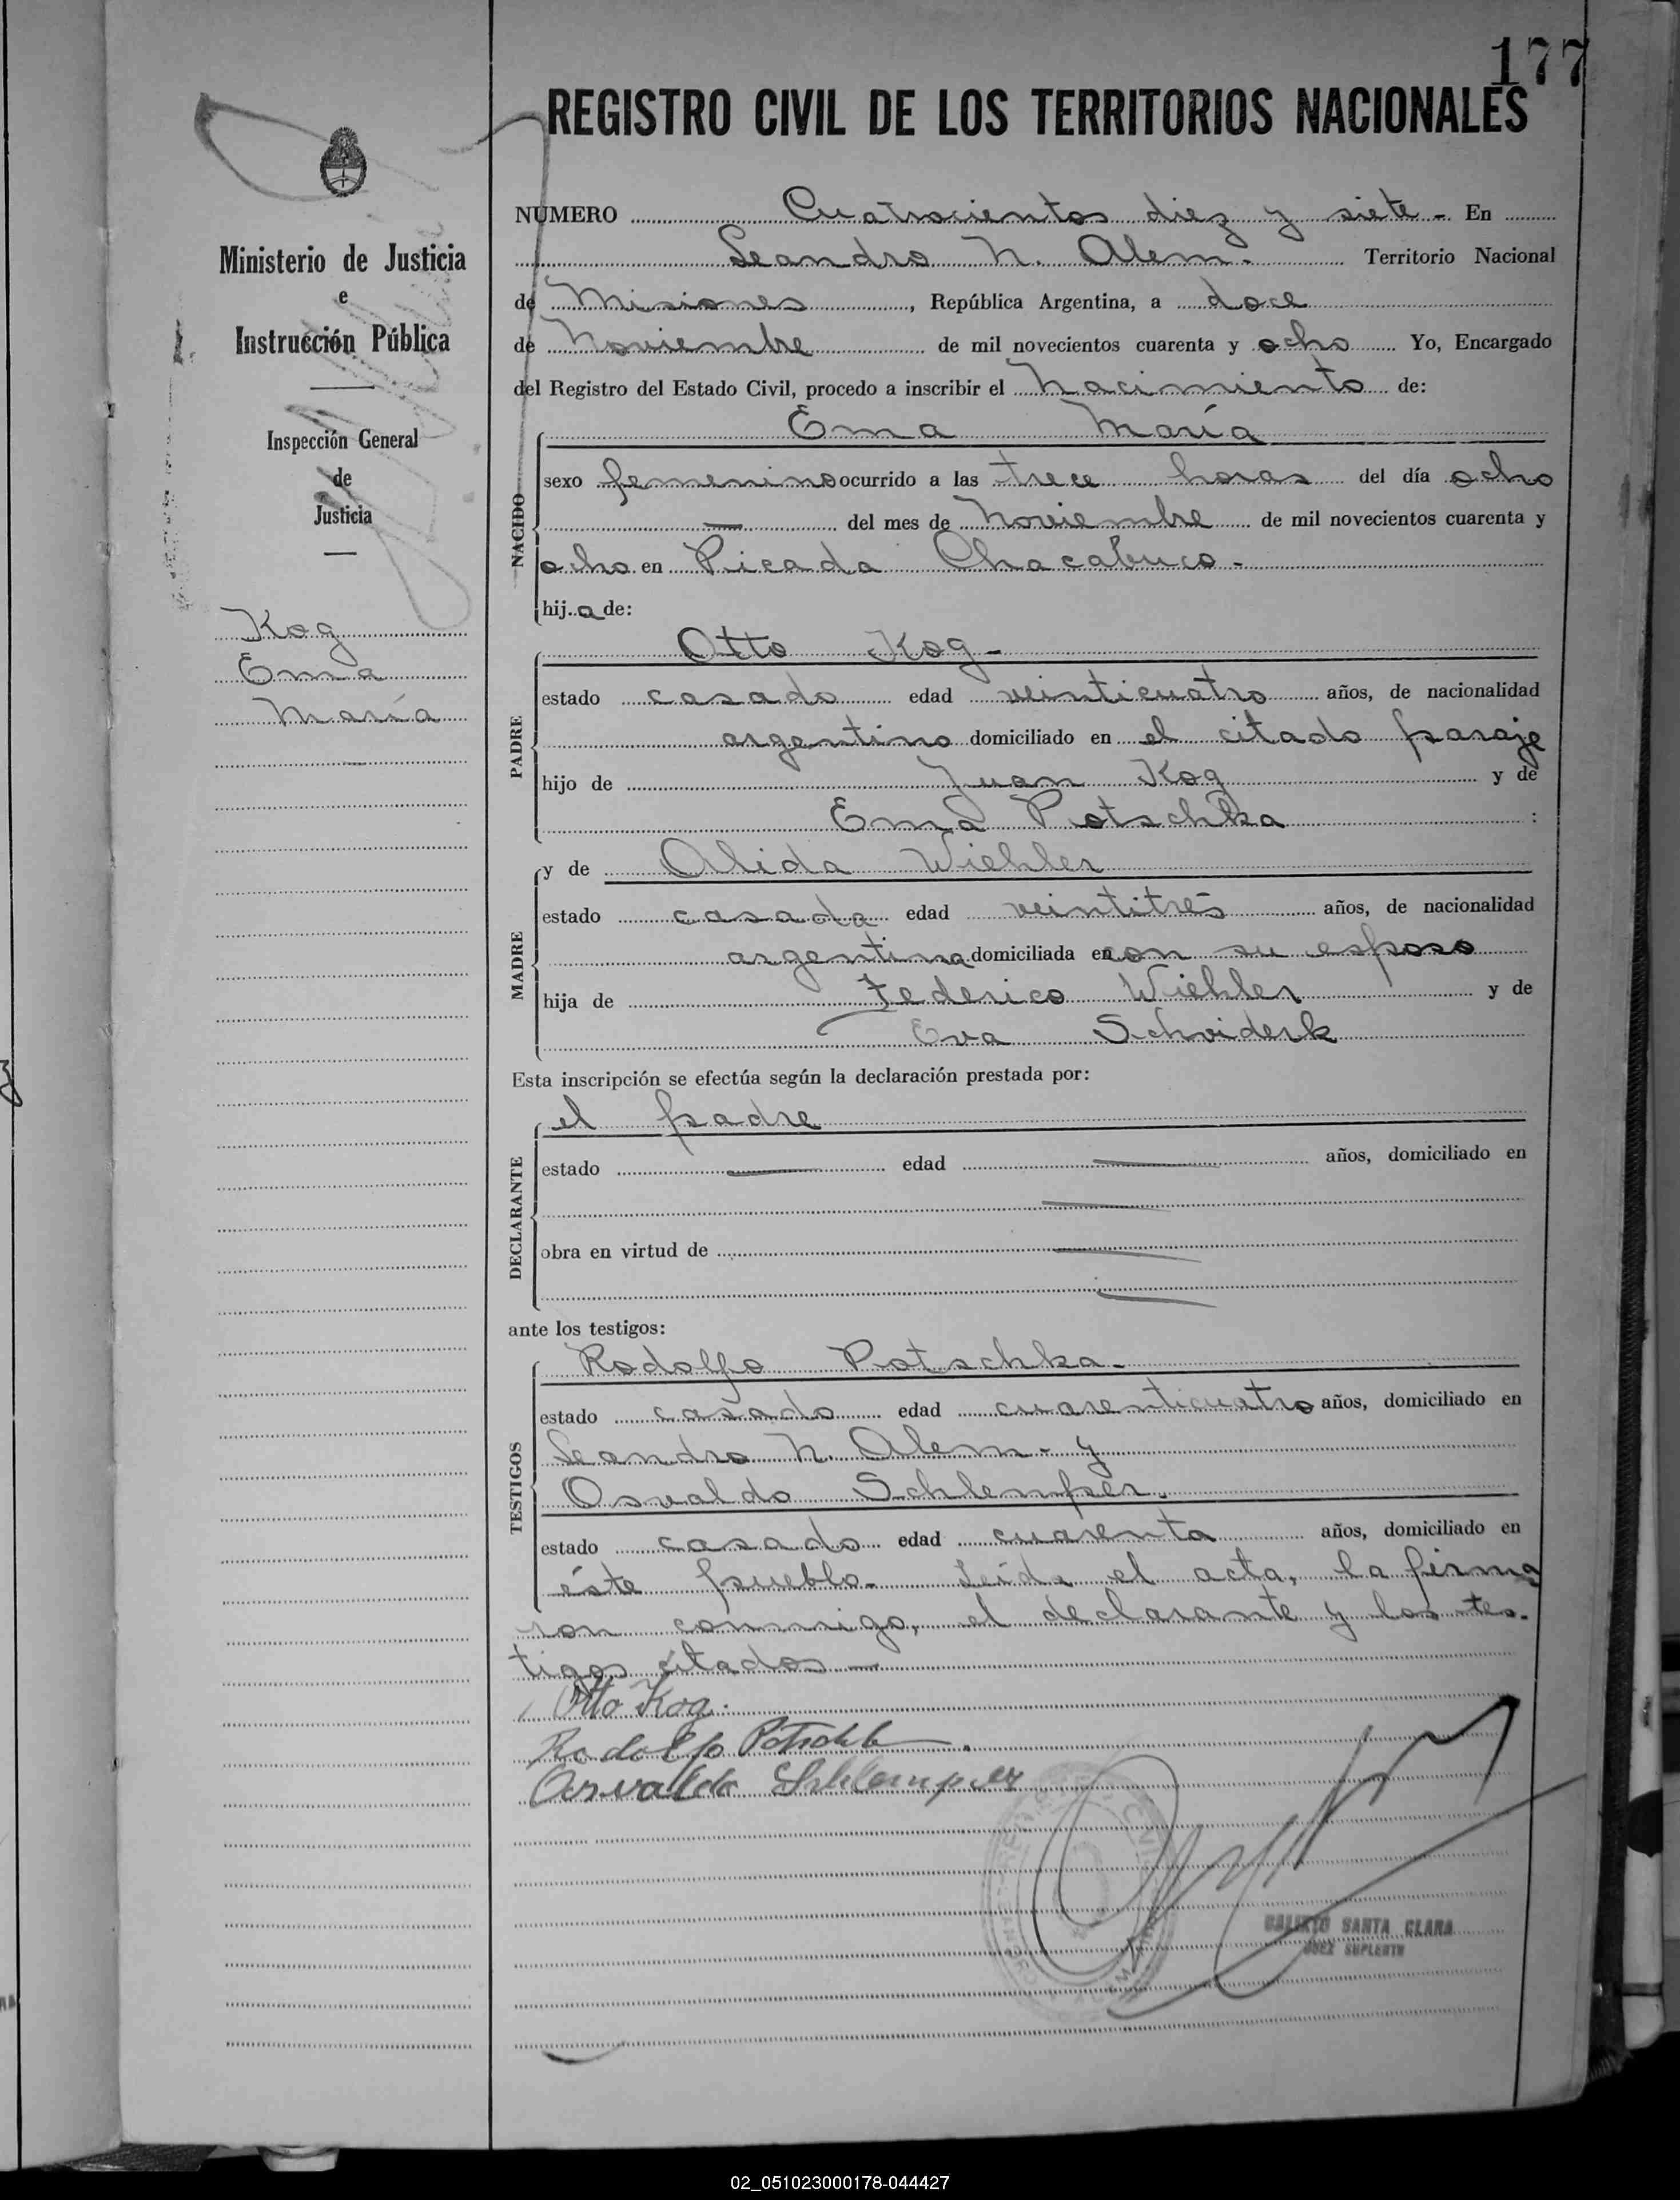 177
REGISTRO CIVIL DE LOS TERRITORIOS NACIONALES
Ministerio de Justicia
e
Instrucción Pública
Inspección General
de
Justicia
Kog
Ema
María
NUMERO Cuatrocientos diez y siete - En
Leandro N. Alem. Territorio Nacional
de Misiones, República Argentina, a doce
de Noviembre de mil novecientos cuarenta y ocho Yo, Encargado
del Registro del Estado Civil, procedo a inscribir el Nacimiento de:
NACIDO
Ema María
sexo femenino ocurrido a las trece horas del día ocho
— del mes de Noviembre de mil novecientos cuarenta y
ocho en Picada Chacabuco -
hija de:
PADRE
Otto Kog -
estado casado edad veinticuatro años, de nacionalidad
argentino domiciliado en el citado paraje
hijo de Juan Kog y de
Ema Potschka :
MADRE
y de Alida Wiehler
estado casada edad veintitrés años, de nacionalidad
argentina domiciliada en con su esposo
hija de Federico Wiehler y de
Eva Schviderk
Esta inscripción se efectúa según la declaración prestada por:
DECLARANTE
el padre
estado — edad — años, domiciliado en
—
obra en virtud de —
—
ante los testigos:
TESTIGOS
Rodolfo Potschka -
estado casado edad cuarenticuatro años, domiciliado en
Leandro N. Alem - y
Osvaldo Schlemper.
estado casado edad cuarenta años, domiciliado en
éste pueblo. Leída el acta, la firma
ron conmigo, el declarante y los tes-
tigos citados —
Otto Kog.
Rodolfo Potschk
Osvaldo Schlemper
SANTA CLARA
JUEZ SUPLENTE
02_051023000178-044427